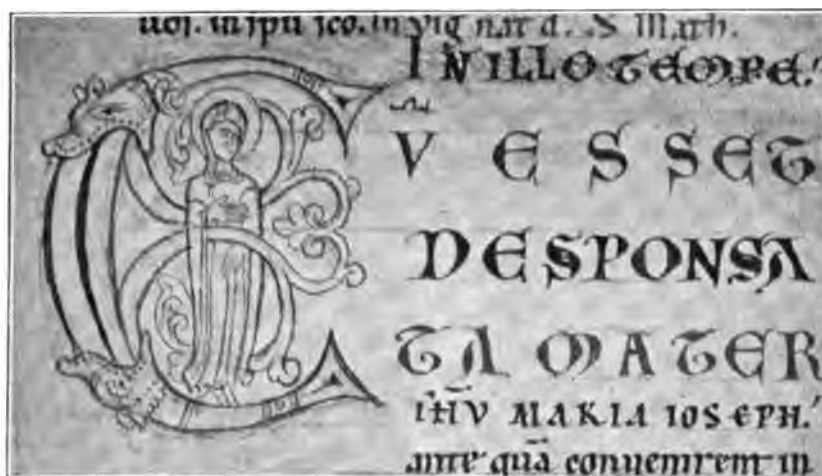 uos. in spu sco. In uig nat d. S Math.
IN ILLO TEMPE.
C V̄ ESSET
DESPONSA
TA MATER
IH̄V MARIA IOSEPH.
ante quā conuenirent in